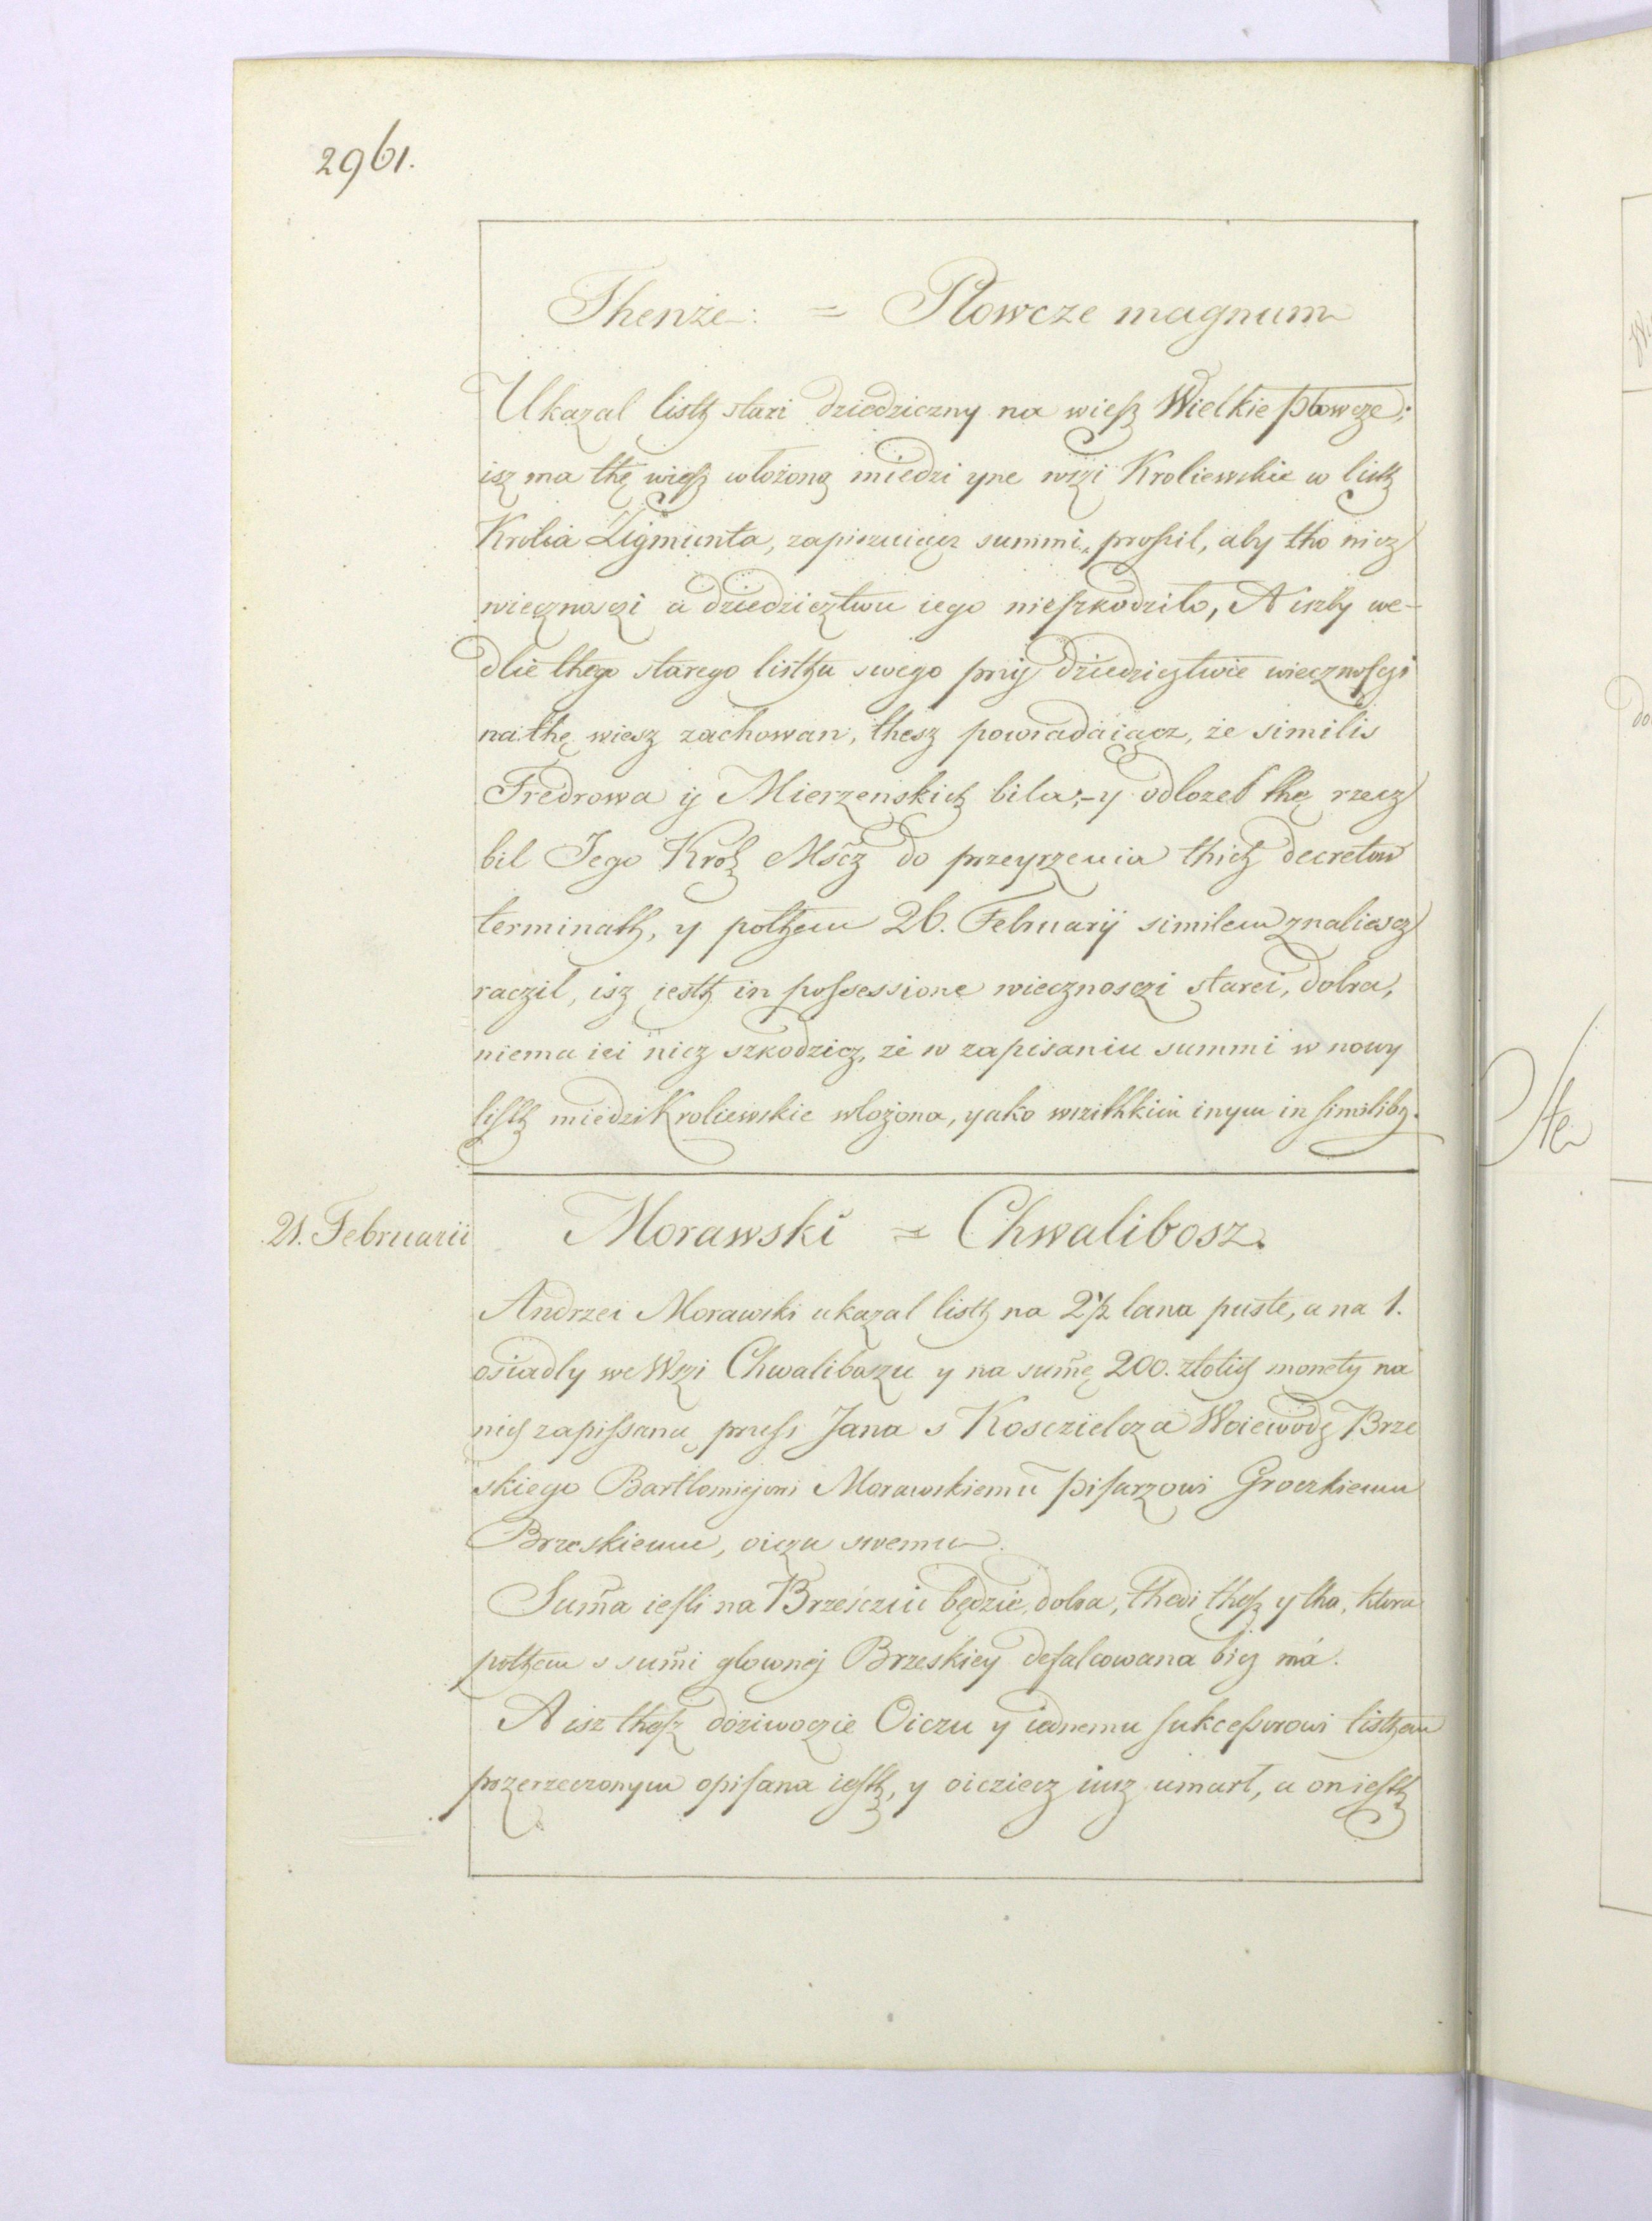 2961.
Thenże: = Płowcze magnum
Ukazal listh stari dziedziczny na wiesz Wielkie Płowcze;
isz ma thę wiesz włożoną miedzi yne wszi Kroliewskie w listh
Krolia Zigmunta, zapisuiącz summi, prosił, aby tho nicz
wiecznosczi a dziedzicztwu iego nieszkodziło, A iżby we-
dlie thego starego listhu swego przij dziedzicztwie wiecznosczi
na thę wiesz zachowan, thesz powiadaiącz, że similis
Fredrowa ij Mierzenskich bila;-y odlozel thę rzecz
bil Jego Krol Mścz do przeyrzenia thich decretow
terminath, y pothem 26. Februarij similem znaliescz
raczil, isz iesth in possessione wiecznosczi starei, dobra,
niema iei nicz szkodzicz, że w zapisaniu summi w nowy
listh miedzi Kroliewskie wlożona, yako wszithkim inym in similibz.
21. Februarii
Morawski = Chwalibosz.
Andrzei Morawski ukazal listh na 2 1/2 lana puste, a na 1.
osiadly we Wszi Chwaliboszu y na sum̃ę 200. złotich monety na
nich zapissaną, przesz Jana s Kosczielcza Woiewodę Brze
skiego Bartłomiejowi Morawskiemu pisarzowi Groczkiemu
Brzeskiemu, oiczu swemu.
Sum̃a iesli na Brzescziu będzie, dobra, thedi thesz y tha, ktora
pothem s sum̃i glownej Brzeskiey defalcowana bicz má.
A isz thesz doziwoczie Oiczu y iednemu sukcessorowi listhem
przerzeczonym opisana iesth, y oicziecz iusz umarł, a on iesth